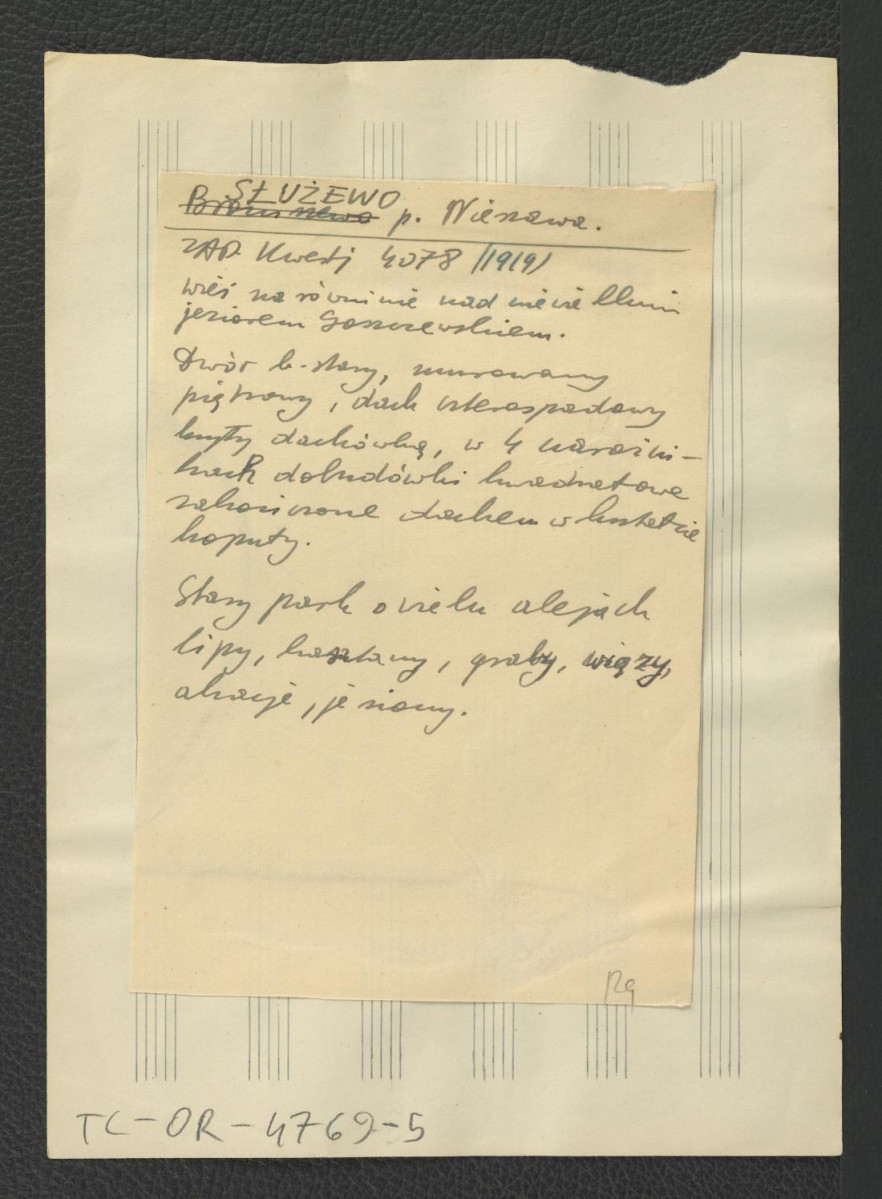 SŁUŻEWO
Broniszewo p. Nieszawa.
ZAP. Kwestj 4078 /1919/
wieś na równinie nad niewielkim
jeziorem Goszczewskiem.
Dwór b. stary, murowany
piętrowy, dach czterospadowy
kryty dachówką, w 4 narożni-
kach dobudówki kwadratowe
zakończone dachem w kształcie
kopuły.
Stary park o wielu alejach
lipy, kasztany, graby, wiązy,
akacje, jesiony.
Rg
TC-OR-4769-5